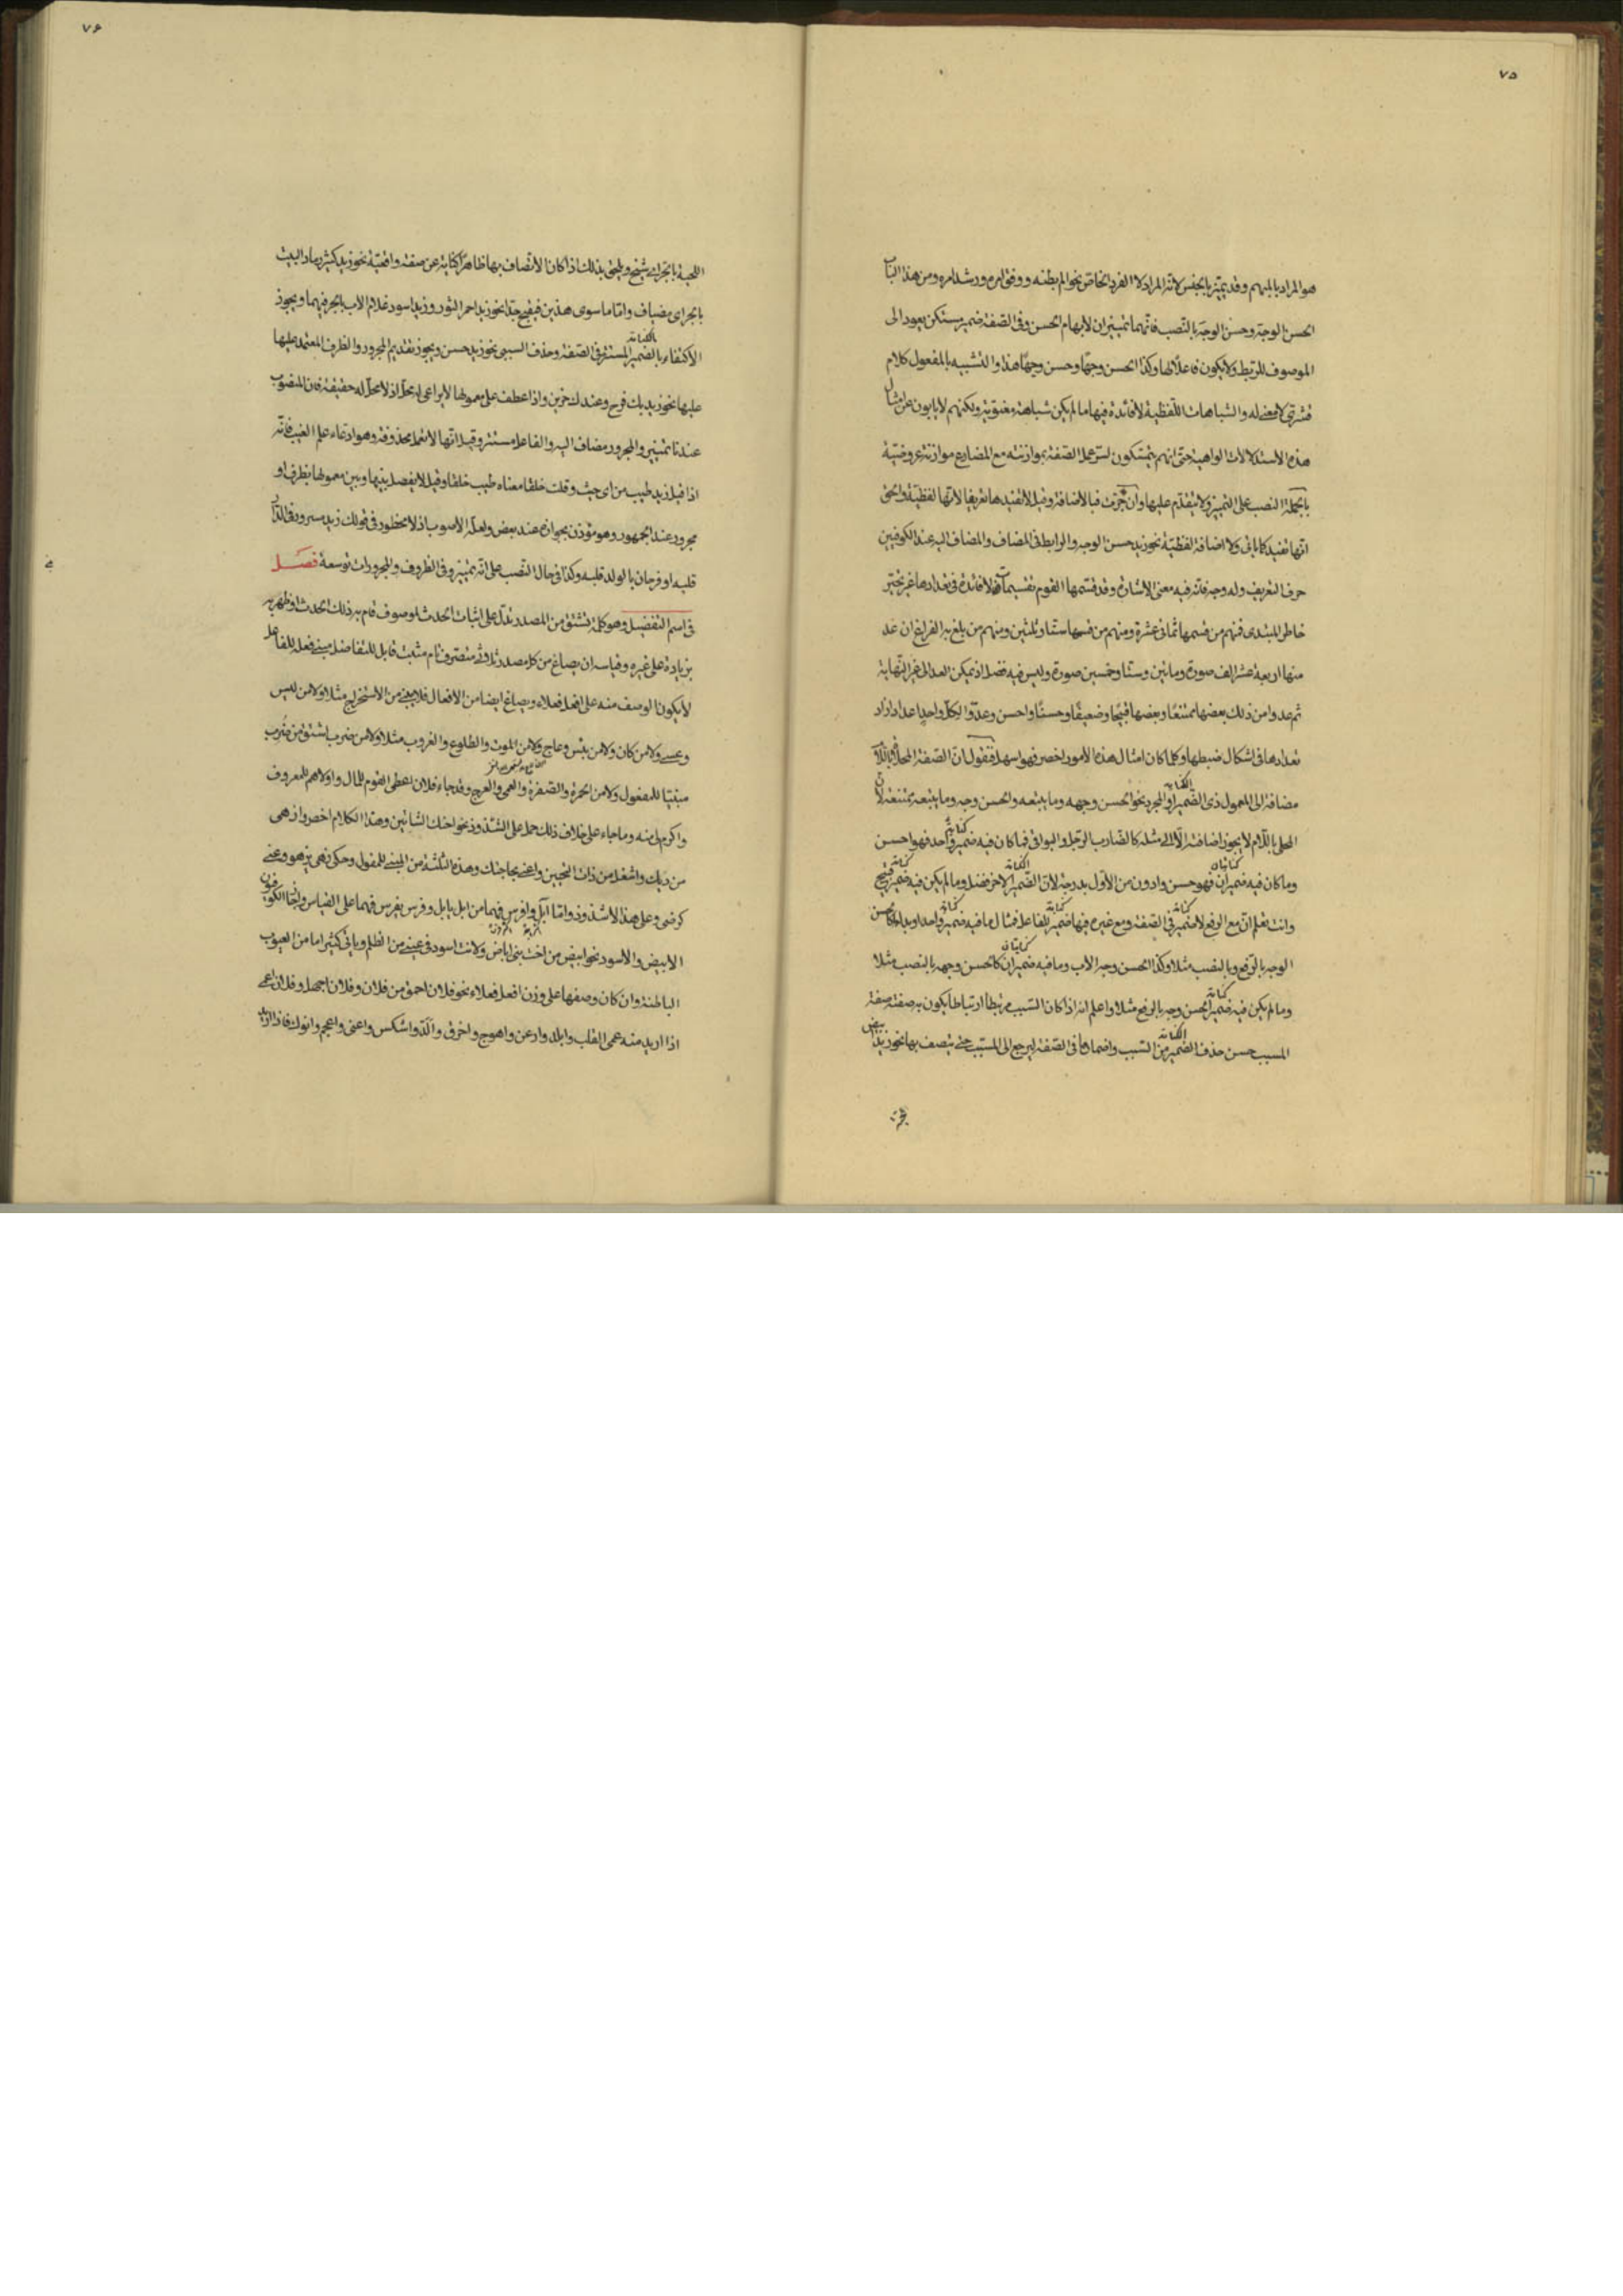 ٧۵
هو المراد بالمبهم وقد يميّز بالجنس لانه المراد لا الفرد الخاص نحو الم بطنه ووفق امره ورشد امره ومن هذا الباب
الحسن الوجه وحسن الوجه بالنصب فانهما تمييزان لابهام الحسن وفى الصفة ضمير مستكن يعود الى
الموصوف للربط ولا يكون فاعلا لها وكذا الحسن وجها وحسن وجها هذا والتشبيه بالمفعول كلام
قشرى لا معنى له والشباهات اللفظية لا فائدة فيها ما لم يكن شباهة معنوية ولكنهم لا يابون عن امثال
هذه الاستدلالات الواهية حتى انهم يتمسكون لسر عمل الصفة بموازنته مع المضارع موازنة عروضية
بالجملة النصب على التمييز ولا يتقدم عليها وان جرّت فبالاضافة وقيل لا تفيدها تعريفا لانها لفظية والحق
انها تفيد كما ياتى ولا اضافة لفظية نحو زيد حسن الوجه والرابط فى المضاف والمضاف اليه عند الكوفيين
حرف التعريف وله وجه فانه فيه معنى الاشارة وقد قسمها القوم تقسيمات لا فائدة فى تعدادها غير تحير
خاطر المبتدى فمنهم من قسمها ثمانى عشرة ومنهم من قسمها ستا وثلثين ومنهم من بلغ به الفراغ ان عد
منها اربعة عشر الف صورة ومائتين وستا وخمسين صورة وليس فيه فضل اذ يمكن العد الى غير النهاية
ثم عدوا من ذلك بعضها ممتنعا وبعضها قبيحا وضعيفا وحسنا واحسن وعدّوا لكل واحد اعدادا زاد
تعدادها فى اشكال ضبطها وكلما كان امثال هذه الامور اخصر فهو اسهل فنقول ان الصفة المحلاة باللام
مضافة الى المعمول ذى الضمير او المجرد نحو الحسن وجهه وما يتبعه والحسن وجه وما يتبعه ممتنعة لان
الكناية
المحلى باللام لا يجوز اضافته الا الى مثله كالضارب الرجل والبواقى فما كان فيه ضمير واحد فهو احسن
كناية
وما كان فيه ضميران فهو حسن وادون من الاول بدرجة لان الضمير الاخر فضل وما لم يكن فيه ضمير قبيح
كنايتان الكناية كناية
وانت تعلم ان مع الرفع لا ضمير فى الصفة ومع غيره فيها ضمير للفاعل فمثال ما فيه ضمير واحد زيد الحسن
كناية كناية كناية
الوجه بالرفع وبالنصب مثلا وكذا الحسن وجه الاب وما فيه ضميران كالحسن وجهه بالنصب مثلا
كنايتان
وما لم يكن فيه ضمير الحسن وجه بالرفع مثلا واعلم انه اذا كان السبب مرتبطا ارتباطا يكون به صفته صفة
كناية
المسبب حسن حذف الضمير من السبب واضمارها فى الصفة ليرجع الى المسبب حتى يتصف بها نحو زيد ابيض
الكناية
٧۶
اللحية بالجر اى شيخ ويلحق بذلك اذا كان الاتصاف بها ظاهرا كناية عن صفة واقعية نحو زيد كثير رماد البيت
بالجر اى مضياف واما ما سوى هذين فيقبح جدا نحو زيد احمر الثور وزيد اسود غلام الاب بالجر فيهما ويجوز
الاكتفاء بالضمير المستتر فى الصفة وحذف السببى نحو زيد حسن ويجوز تقديم المجرور والظرف المعتمد عليها
بالكناية
عليها نحو زيد بك فرح وعندك حزين واذا عطف على معمولها لا يراعى له محل اذ لا محل له حقيقة فان المنصوب
عندنا تمييز والمجرور مضاف اليه والفاعل مستتر وقيل انها لا تعمل محذوفة وهو ادعاء علم الغيب فانه
اذا قيل زيد طيب من اى حيث وقلت خلقا معناه طيب خلقا وقيل لا يفصل بينها وبين معمولها بظرف او
مجرور عند الجمهور وهو مؤذن بجوازه عند بعض ولعله الاصوب اذ لا محظور فى قولك زيد مسرور فى الدار
قلبه او فرحان بالولد قلبه وكذا فى حال النصب على انه تمييز وفى الظروف والمجرورات توسعة فصل
فى اسم التفضيل وهو كلمة تشتق من المصدر تدل على اثبات الحدث لموصوف قام به ذلك الحدث او ظهر به
بزيادة على غيره وقياسه ان يصاغ من كل مصدر ثلاثى متصرف تام مثبت قابل للتفاضل مبنى فعله للفاعل
لا يكون الوصف منه على افعل فعلاء ويصاغ ايضا من الافعال فلا يبنى من الاستخراج مثلا ولا من ليس
وعسى ولا من كان ولا من بئس وعاج ولا من الموت والطلوع والغروب مثلا ولا من ضرب اشتق من ضُرب
مبنيا للمفعول ولا من الحمرة والصفرة والعمى والعرج وقد جاء فلان اعطى القوم للمال واولاهم للمعروف
واكرم لى منه وما جاء على خلاف ذلك حمل على الشذوذ نحو احنك الشاتين وهذا الكلام اخصر وازهى
من ديك واشغل من ذات النحيين واعنى بحاجتك وهذه الثلثة من المبنى للمفعول وحكى زهى يزهو وعنى
كرضى وعلى هذا لا شذوذ واما آبل وافرس فهما من ابل يابل وفرس يفرس فهما على القياس واتبعا الكوفيون
الابيض والاسود نحو ابيض من اخت بنى اباض ولانت اسود فى عينى من الظلم وياتى كثيرا ما من العيوب
الباطنة وان كان وصفها على وزن افعل فعلاء نحو فلان احمق من فلان وفلان اجهل وفلان اعمى
اذا اريد منه عمى القلب وابلد وارعن واهوج واخرق والدّ واشكس واعيى واعجم وانوك فاذا اريد